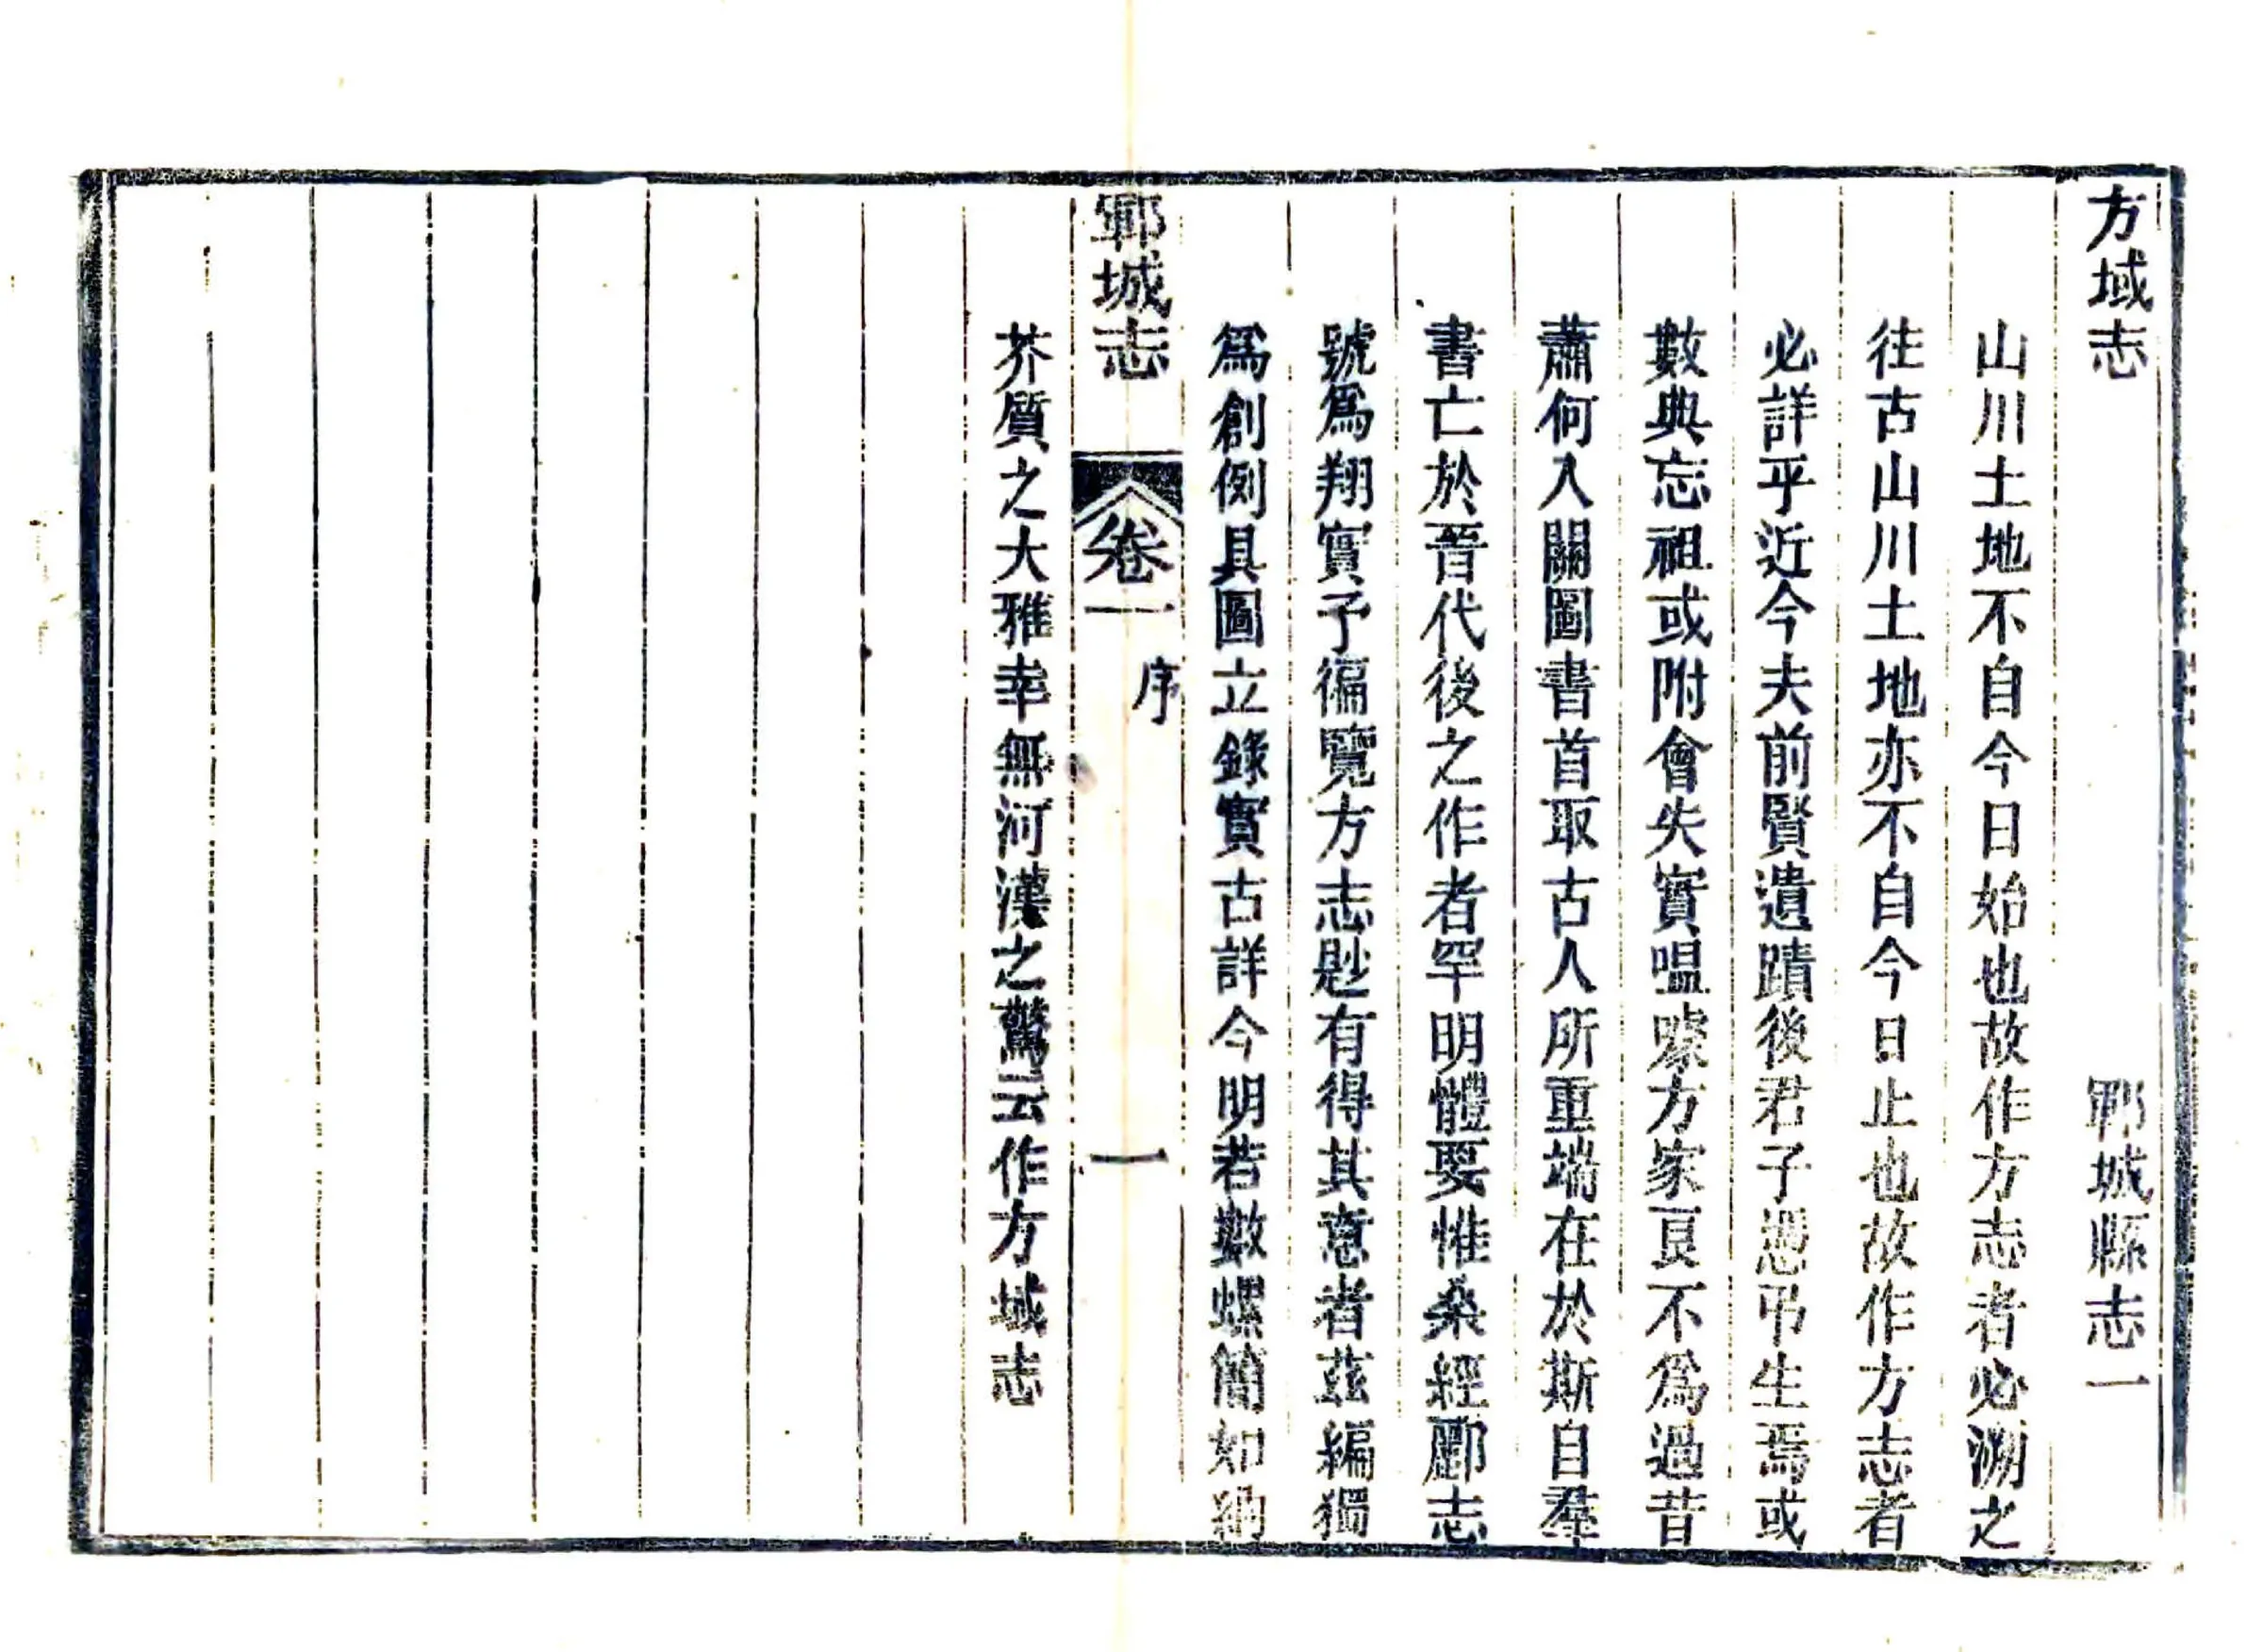 方域志 鄆城縣志一
山川土地不自今日始也故作方志者必溯之
往古山川土地亦不自今日止也故作方志者
必詳乎近今夫前賢遺蹟後君子憑弔生焉或
數典忘祖或附會失實嗢噱方家良不爲過昔
蕭何入關圖書首取古人所重端在於斯自羣
書亡於晉代後之作者罕明體要惟桑經酈志
號爲翔實予徧覽方志尟有得其意者茲編獨
爲創例具圖立錄實古詳今明若數螺簡如納
鄆城志 卷一 序 一
芥質之大雅幸無河漢之驚云作方域志